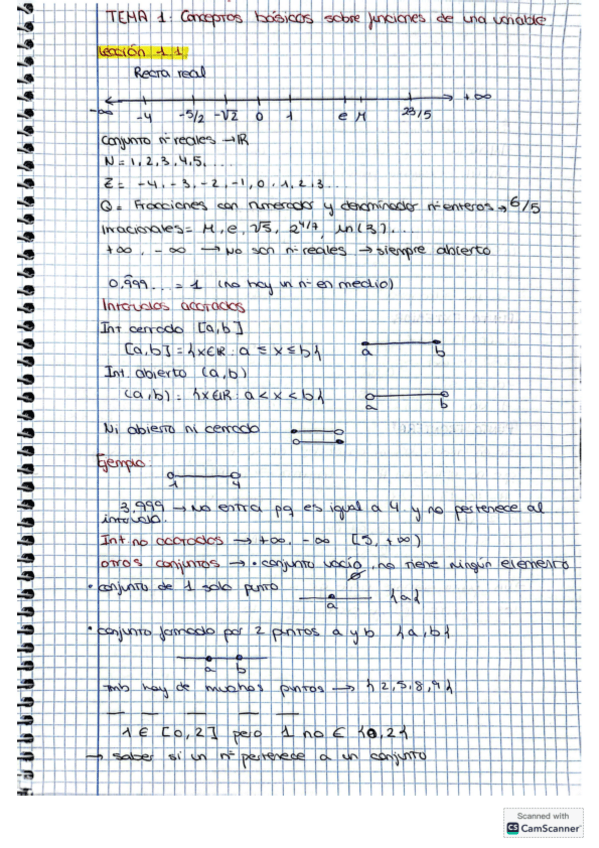 TEMA 1: Conceptos básicos sobre funciones de una variable
Lección 1.1
Recta real
-∞ -4 -5/2 -√2 0 1 e π 23/5 +∞
Conjunto nº reales → ℝ
N = 1, 2, 3, 4, 5, ...
Z = -4, -3, -2, -1, 0, 1, 2, 3...
Q = Fracciones con numerador y denominador nº enteros → 6/5
Irracionales = π, e, √5, 2^4/7, ln(3)...
+∞, -∞ → No son nº reales → siempre abierto
0,999... = 1 (no hay un nº en medio)
Intervalos acotados
Int cerrado [a,b]
[a,b] = {x∈ℝ : a ≤ x ≤ b}
a b
Int. abierto (a,b)
(a,b) = {x∈ℝ : a < x < b}
a b
Ni abierto ni cerrado
Ejemplo
1 4
3,999 → No entra pq es igual a 4 y no pertenece al
intervalo.
Int no acotados → +∞, -∞ [5, +∞)
Otros conjuntos → • conjunto vacío, no tiene ningún elemento
∅
• conjunto de 1 solo punto {a}
a
• conjunto formado por 2 puntos a y b {a,b}
a b
Tmb hay de muchos puntos → {2,5,8,9}
1 ∈ [0,2] pero 1 no ∈ {0,2}
→ saber si un nº pertenece a un conjunto
Scanned with
CS CamScanner